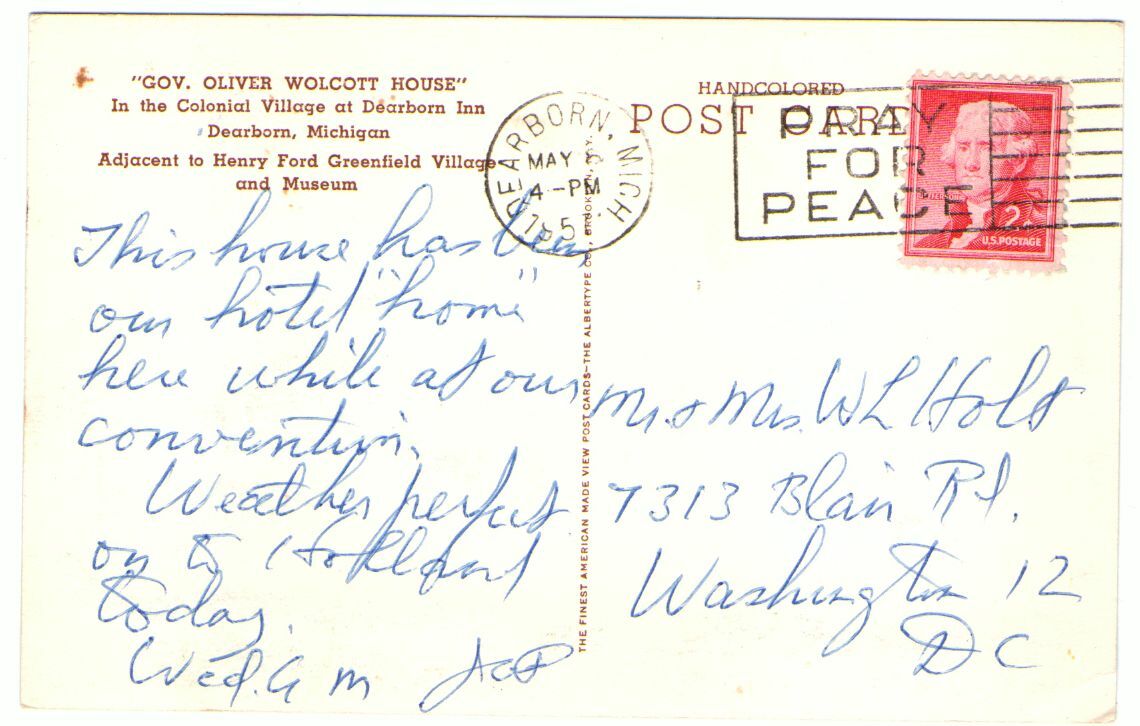 "GOV. OLIVER WOLCOTT HOUSE"
In the Colonial Village at Dearborn Inn
Dearborn, Michigan
Adjacent to Henry Ford Greenfield Village
and Museum
This house has been
our hotel "home"
here while at our
convention.
Weather perfect
on to Holland
today.
Wed. A M
THE FINEST AMERICAN MADE VIEW POST CARDS—THE ALBERTYPE CO., BROOKLYN, N.Y.
HANDCOLORED
POST CARD
DEARBORN, MICH.
MAY
4-PM
195
PRAY
FOR
PEACE
2¢
U.S. POSTAGE
Mr. & Mrs. W L Holt
7313 Blair Rd.
Washington 12
DC